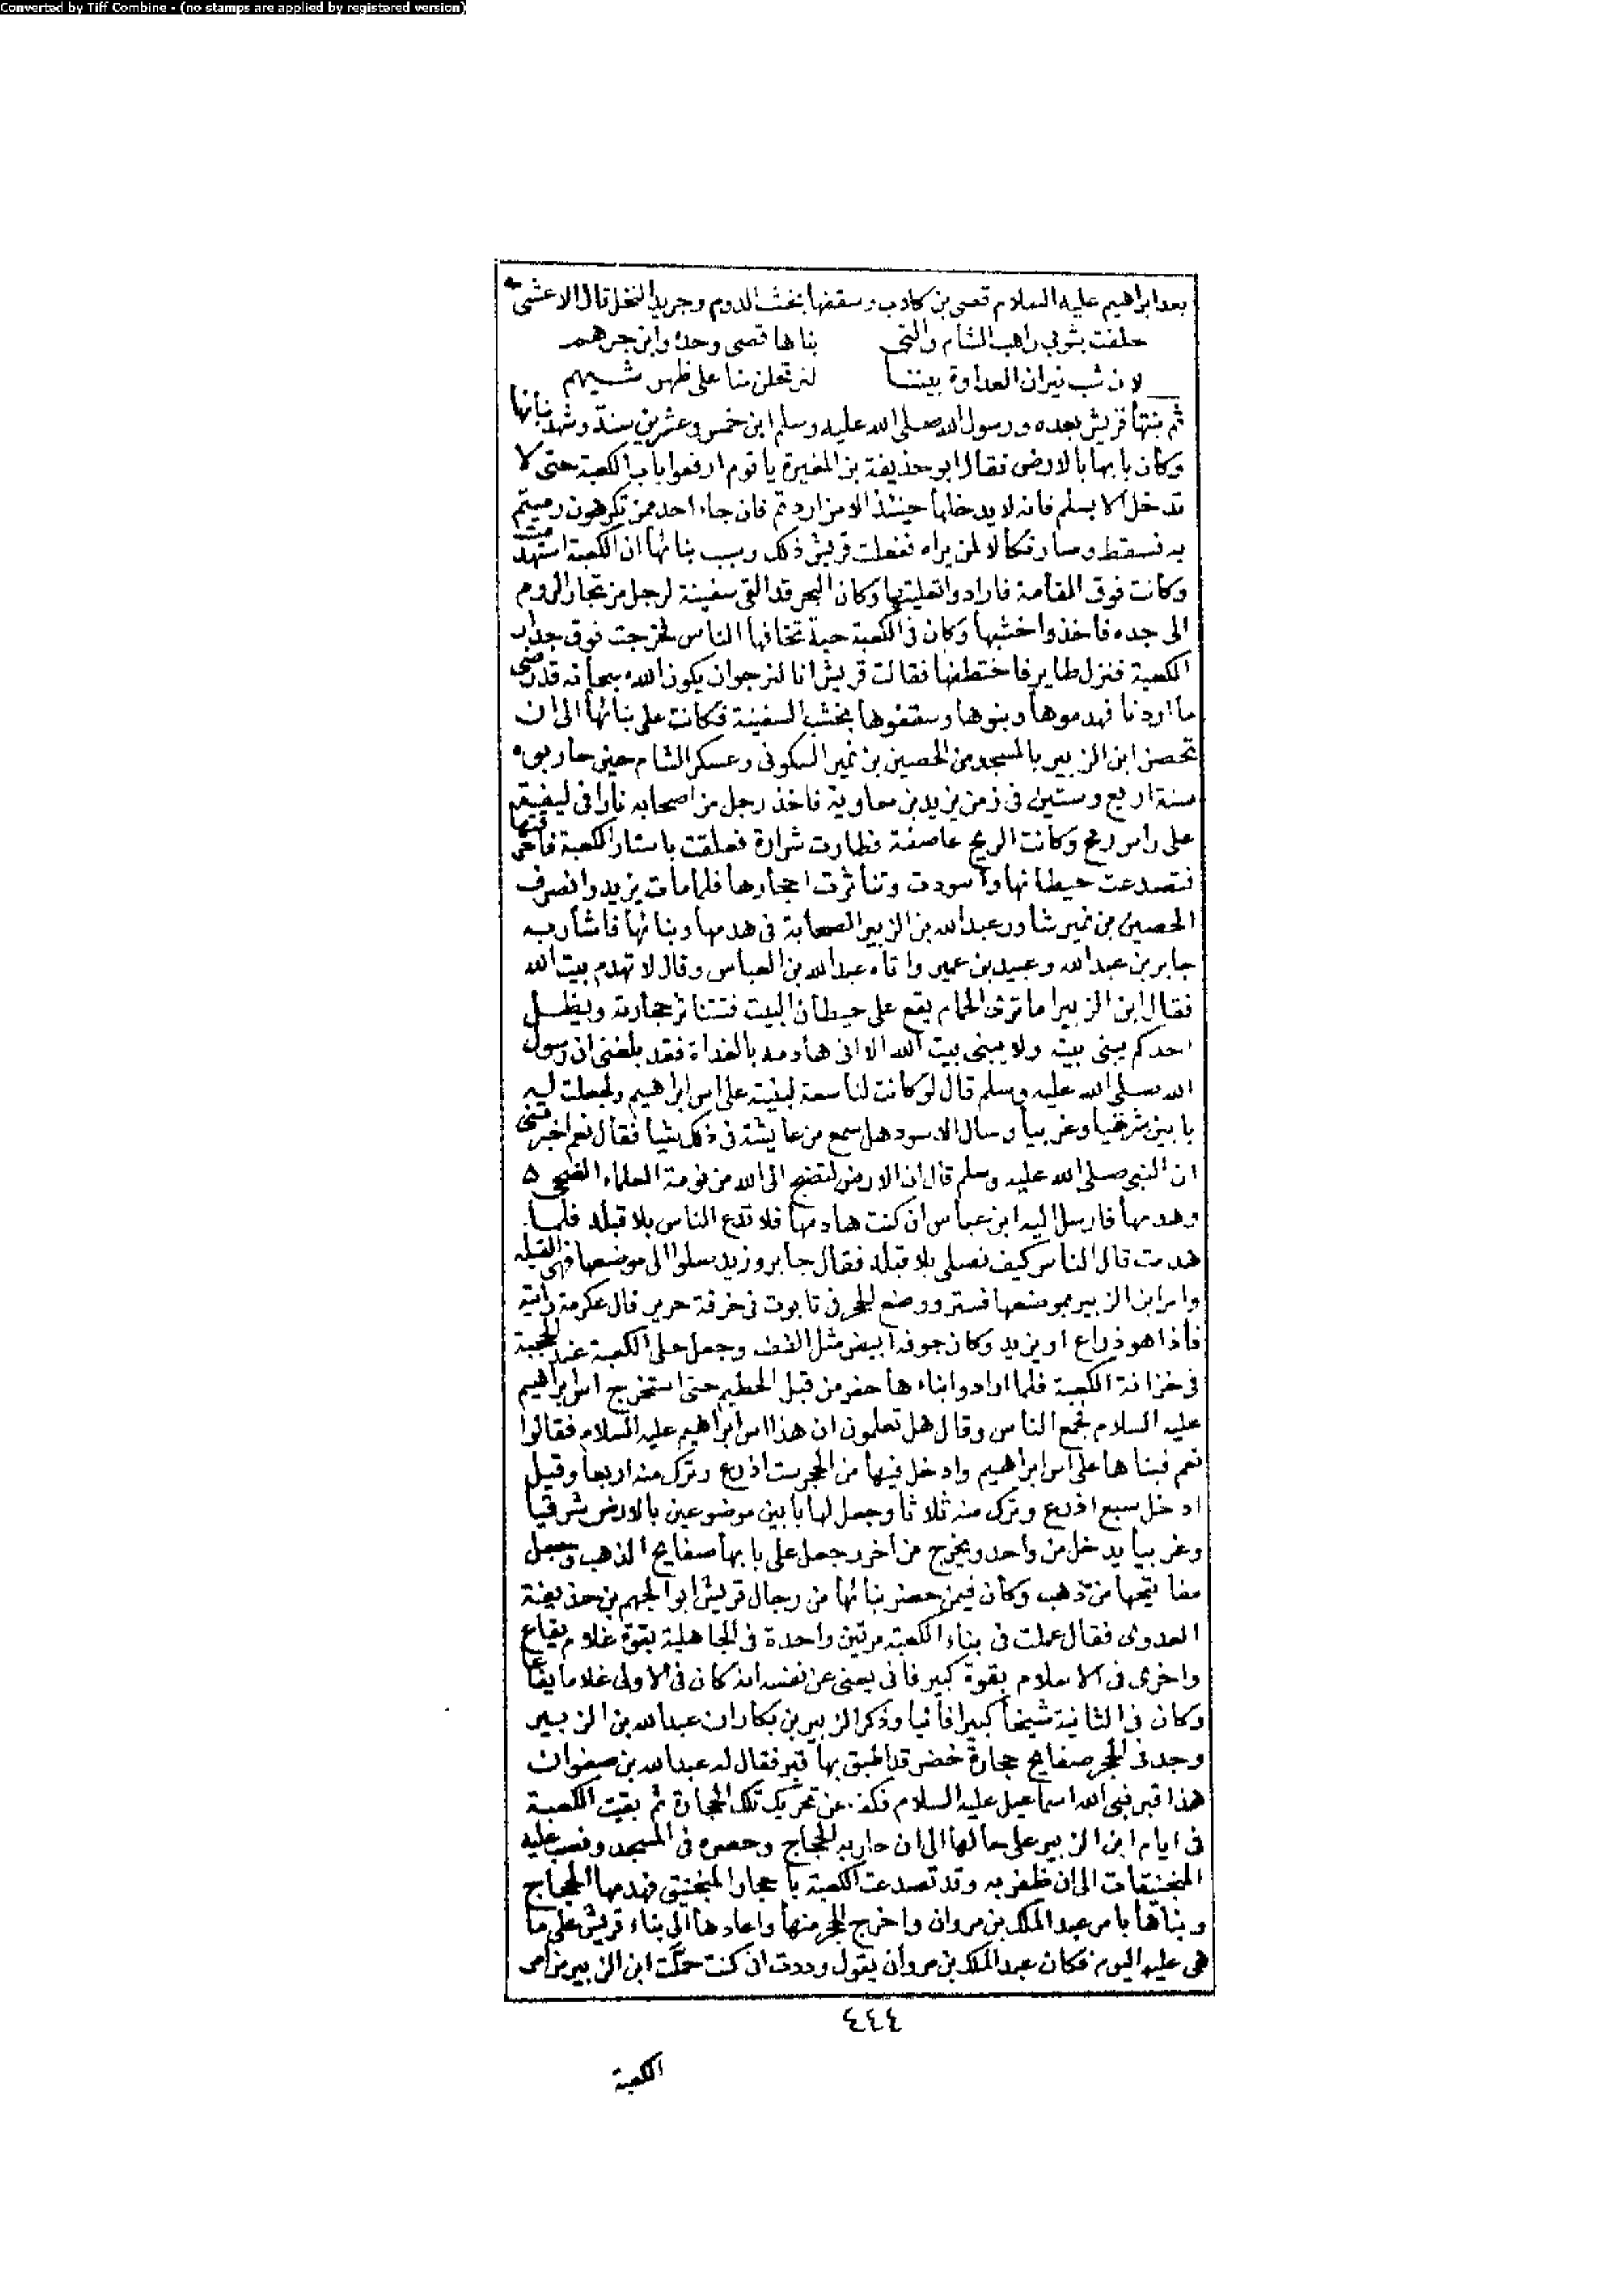 Converted by Tiff Combine - (no stamps are applied by registered version)
بعد ابراهيم عليه السلام قصى بن كلاب وسقفها بخشب الدوم وجريد النخل قال الاعشى
حلفت بثوبي راهب الشام والتى بناها قصى وحده وابن جرهم
لان شب نيران العداوة بيننا لترتحلن منا على ظهر شيهم
ثم بنتها قريش بعده ورسول الله صلى الله عليه وسلم ابن خمس وعشرين سنة وشهد بنائها
وكان بابها بالارض فقال ابو حذيفة بن المغيرة يا قوم ارفعوا باب الكعبة حتى لا
تدخل الا بسلم فانه لا يدخلها حينئذ الا من اردتم فان جاء احد ممن تكرهون رميتم
به فسقط وصار نكالا لمن يراه ففعلت قريش ذلك وسبب بنائها ان الكعبة استهدمت
وكانت فوق القامة فارادوا تعليتها وكان البحر قد القى سفينة لرجل من تجار الروم
الى جده فاخذوا خشبها وكان فى الكعبة حية تخافها الناس فخرجت فوق جدار
الكعبة فنزل طاير فاختطفها فقالت قريش انا لنرجوا ن يكون الله سبحانه قد رضى
ما اردنا فهدموها وبنوها وسقفوها بخشب السفينة فكانت على بنائها الى ان
تحصن ابن الزبير بالمسجد من الحصين بن نمير السكونى وعسكر الشام حين حاربوه
سنة اربع وستين فى زمن يزيد بن معاوية فاخذ رجل من اصحابه نارا فى ليفة
على راس رمح وكانت الريح عاصفة فطارت شرارة فعلقت باستار الكعبة فاحرقتها
فتصدعت حيطانها واسودت وتناثرت احجارها فلما مات يزيد وانصرف
الحصين بن نمير شاور عبد الله بن الزبير الصحابة فى هدمها وبنائها فاشار به
جابر بن عبد الله وعبيد بن عمير واتاه عبد الله بن العباس وقال لا تهدم بيت الله
فقال ابن الزبير اما ترى الحمام يقع على حيطان البيت فتتناثر حجارته ويظل
احدكم يبنى بيته ولا يبنى بيت الله الا انى هادمه بالغداة فقد بلغنى ان رسول
الله صلى الله عليه وسلم قال لو كانت لنا سعة لبنيته على اس ابراهيم ولجعلت له
بابين شرقيا وغربيا وسال الاسود هل سمع من عايشة فى ذلك شيا فقال نعم اخبرتنى
ان النبى صلى الله عليه وسلم قال ان الارض لتضج الى الله من نومة العلماء الضحى ٥
وهدمها فارسل اليه ابن عباس ان كنت هادمها فلا تدع الناس بلا قبلة فلما
هدمت قال الناس كيف نصلى بلا قبلة فقال جابر وزيد صلوا الى موضعها فهى القبلة
وامر ابن الزبير بموضعها فستر ووضع الحجر فى تابوت فى خرقة حرير قال عكرمة رايته
فاذا هو ذراع او يزيد وكان جوفه ابيض مثل الفضة وجعل حلى الكعبة عند الحجبة
فى خزانة الكعبة فلما ارادوا بناءها حفر من قبل الحطيم حتى استخرج اس ابراهيم
عليه السلام فجمع الناس وقال هل تعلمون ان هذا اس ابراهيم عليه السلام فقالوا
نعم فبناها على اس ابراهيم وادخل فيها من الحجر ست اذرع وترك منه اربعا وقيل
ادخل سبع اذرع وترك منه ثلاثا وجعل لها بابين موضوعين بالارض شرقيا
وغربيا يدخل من واحد ويخرج من اخر وجعل على بابها صفايح الذهب وجعل
مفاتيحها من ذهب وكان فيمن حضر بنائها من رجال قريش ابو الجهم بن حذيفة
العدوى فقال عملت فى بناء الكعبة مرتين واحدة فى الجاهلية بقوة غلام يفاع
واخرى فى الاسلام بقوة كبير فانى يعنى عن نفسه انه كان فى الاولى غلاما يفاعا
وكان فى الثانية شيخا كبيرا فانيا وذكر الزبير بن بكار ان عبد الله بن الزبير
وجد فى الحجر صفايح حجارة خضر قد اطبق بها قبر فقال له عبد الله بن صفوان
هذا قبر نبى الله اسماعيل عليه السلام فكف عن تحريك تلك الحجارة ثم بقيت الكعبة
فى ايام ابن الزبير على حالها الى ان حاربه الحجاج وحصره فى المسجد ونصب عليه
المنجنيقات الى ان ظفر به وقد تصدعت الكعبة باحجار المنجنيق فهدمها الحجاج
وبناها بامر عبد الملك بن مروان واخرج الحجر منها واعادها الى بناء قريش على ما
هى عليه اليوم فكان عبد الملك بن مروان يقول وددت انى كنت حملت ابن الزبير من امر
٤٤٤
الكعبة